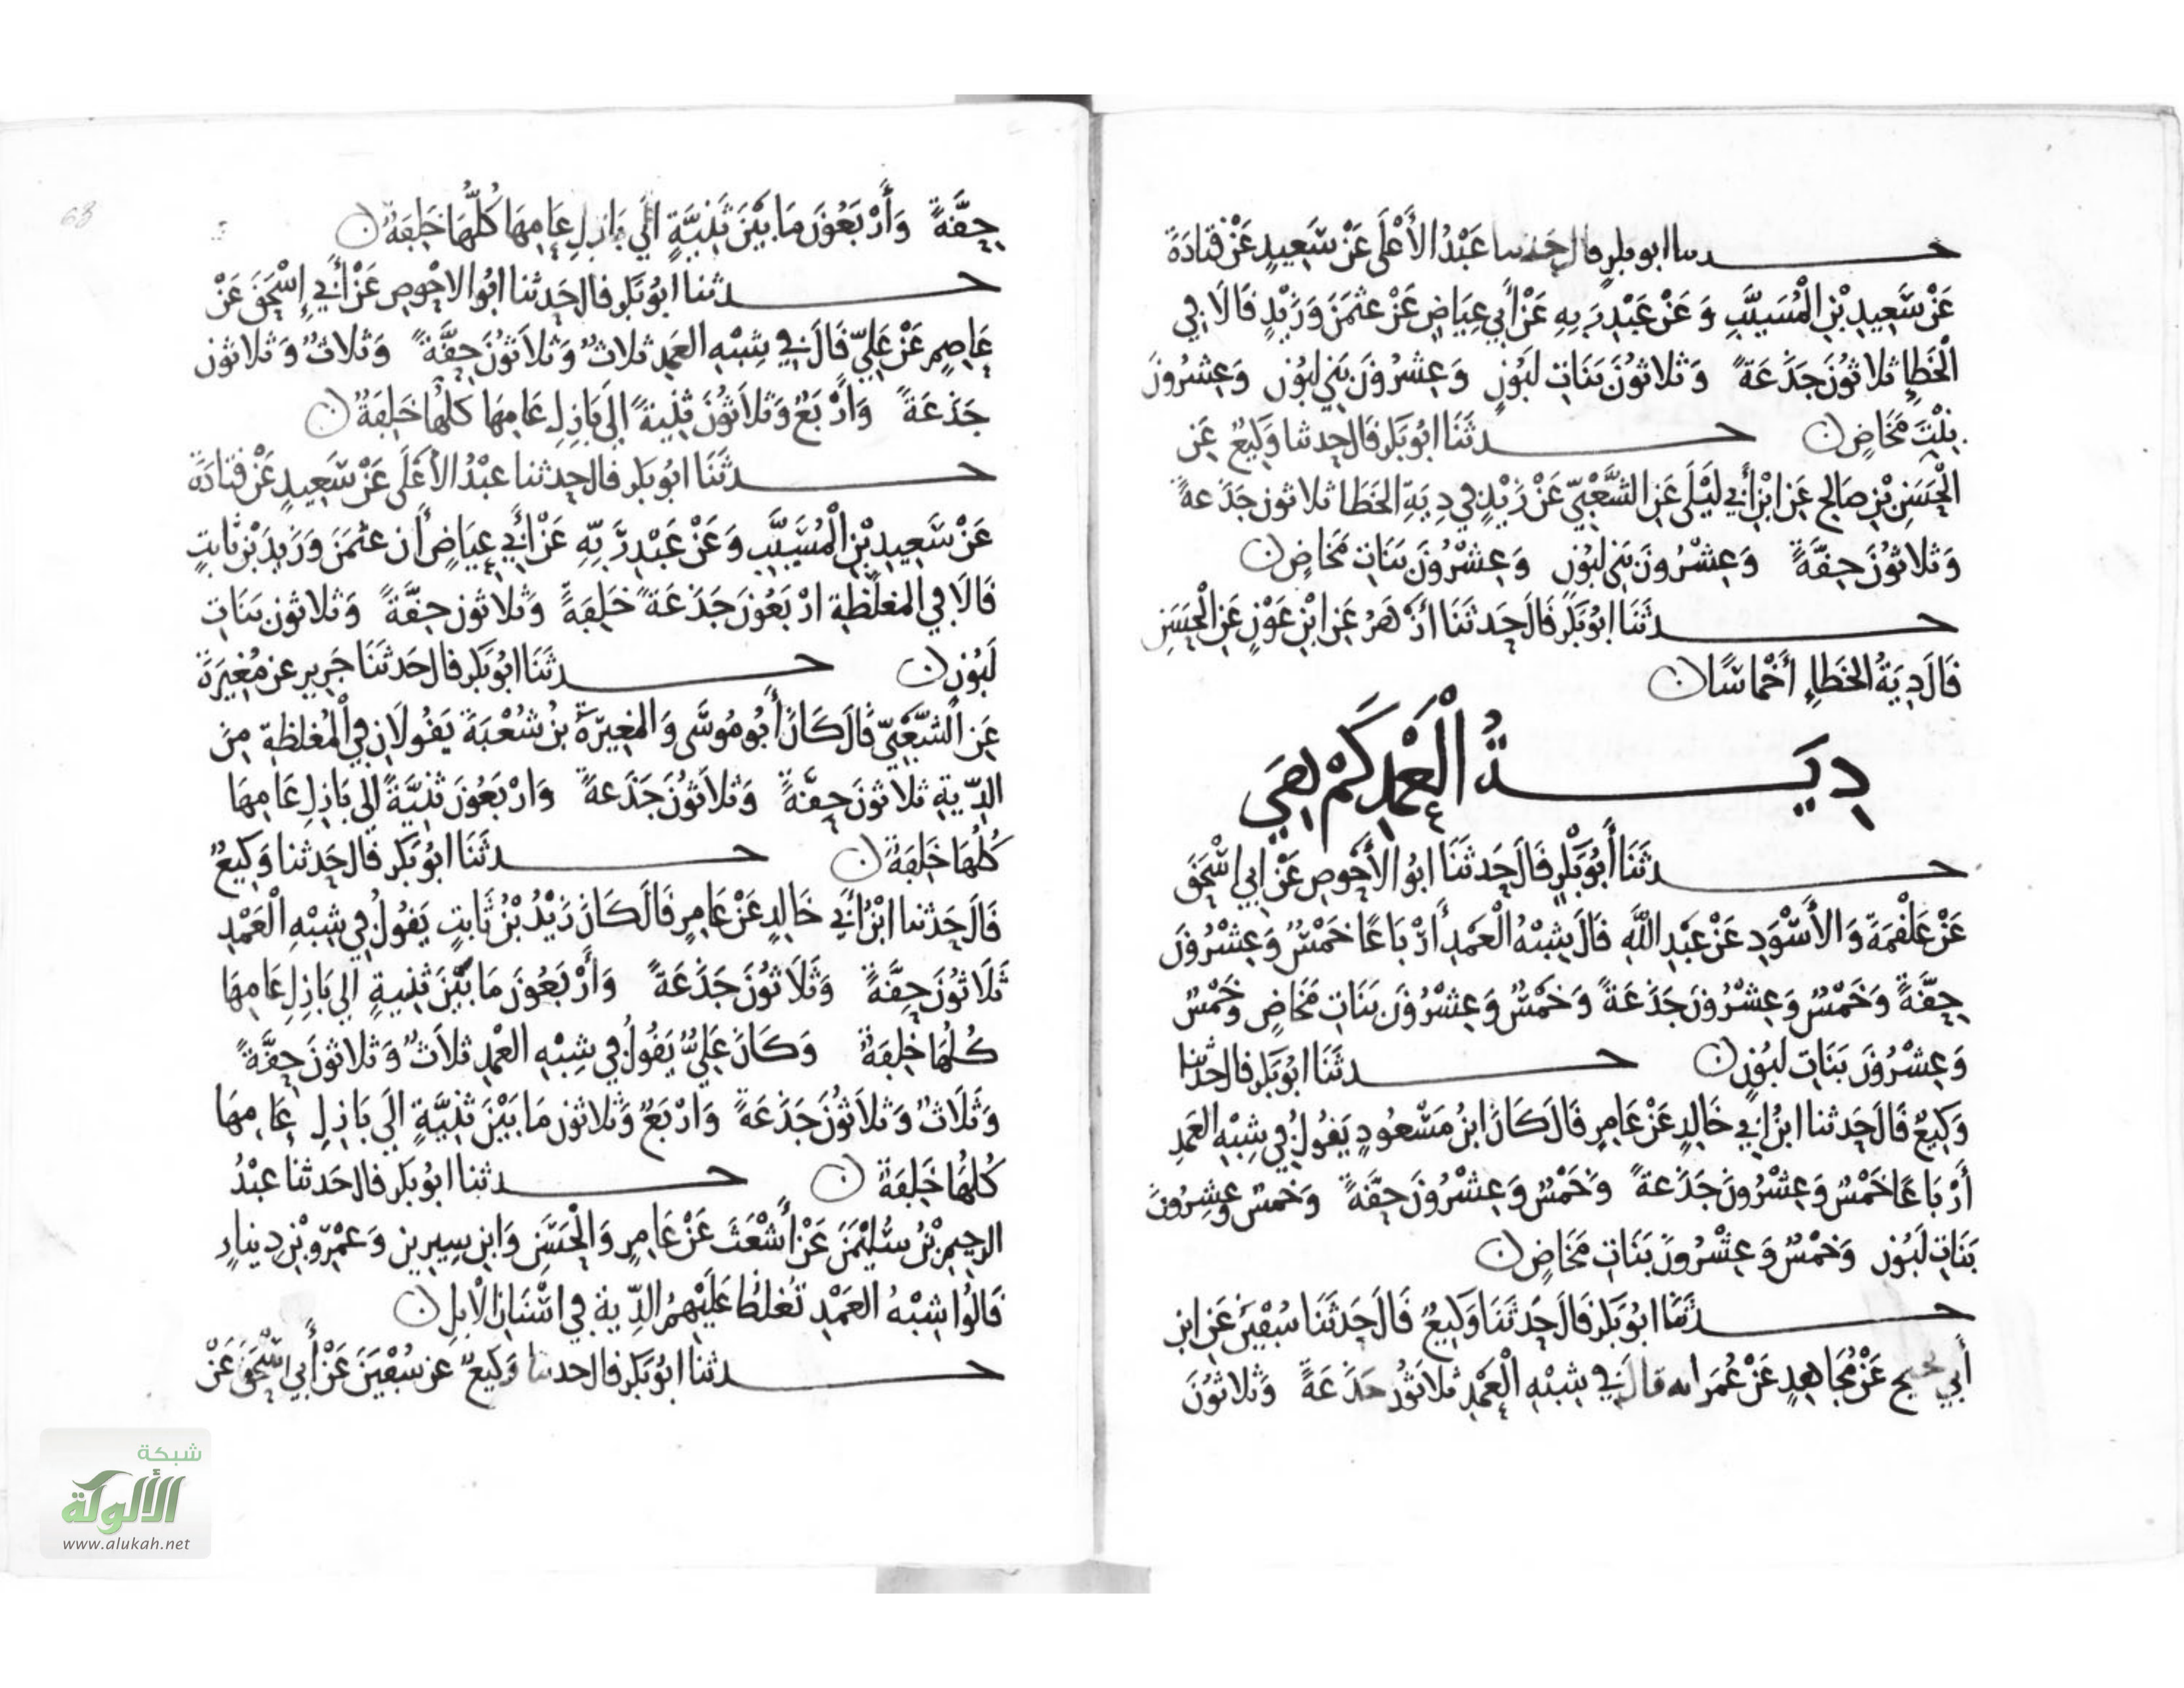 حدثنا ابو بكر قال حدثنا عَبْدُ الأَعْلَى عَنْ سَعِيدٍ عَنْ قتَادَةَ
عَنْ سَعِيدِ بْنِ الْمُسَيَّبِ وَعَنْ عَبْدِ رَبِهِ عَنْ أَبِي عِيَاضٍ عَنْ عثمَنَ وَزَيْدٍ قَالَا فِي
الْخَطَإِ ثلَاثُونَ جَذَعَةً وَثلَاثُونَ بَنَاتِ لَبُونٍ وَعِشرُونَ بَنِي لبُونٍ وَعِشرُونَ
بِنْتَ مَخَاضٍ حدثَنَا ابُو بَكر قَال حدثنا وَكِيعٌ عَنِ
الْحَسَنِ بْنِ صَالِحٍ عَنِ ابْنِ أَبِي لَيْلَى عَنِ الشَّعْبِيّ عَنْ زَيْدٍ فِي دِيَةِ الخَطَا ثلاثون جَذَعةً
وَثلاثُونَ حِقَّةً وَعِشْرُونَ بَنِي لبُونٍ وَعِشْرُونَ بَنَاتِ مَخَاضٍ
حدثَنَا ابُو بَكْرٍ قَالَ حَدثَنَا ازْهَرُ عَنِ ابْنِ عَوْنٍ عَنِ الْحَسَنِ
قَالَ دِيَةُ الخَطَإِ أَخْمَاسًا
دِيَةُ الْعَمْدِ كَمْ هِيَ
حدثَنَا أَبُو بَكْرٍ قَالَ حَدثَنَا ابُو الأَحْوصِ عَنْ ابِي اسْحَقَ
عَنْ عَلْقَمَةَ وَالأَسْوَدِ عَنْ عَبْدِ اللَّهِ قَالَ شِبْهُ الْعَمْدِ أَرْبَاعًا خَمْسٌ وَعِشْرُونَ
حِقَّةً وَخَمْسٌ وَعِشْرُونَ جَذَعَةً وَخَمْسٌ وَعِشْرُونَ بَنَاتِ مَخَاضٍ وَخَمْسٌ
وَعِشْرُونَ بَنَاتِ لَبُونٍ حدثَنَا ابُو بَكر قال حدثنا
وَكِيعٌ قَالَ حَدثنا ابْنُ ابِي خَالِدٍ عَنْ عَامِرٍ قَالَ كَانَ ابْنُ مَسْعُودٍ يَقُولُ فِي شِبْهِ العَمْدِ
أَرْبَاعًا خَمْسٌ وَعِشْرُونَ جَذَعةً وَخَمْسٌ وَعِشْرُونَ حِقَّةً وَخمسٌ وَعِشرُونَ
بَنَاتِ لَبُون وَخمْسٌ وَعِشْرُونَ بَنَاتِ مَخَاضٍ
حدثَنَا ابُو بَكر قَالَ حَدثَنَا وَكِيعٌ قَالَ حَدثَنَا سُفْيَنُ عَنِ ابْنِ
أَبِي نجيح عَنْ مُجَاهِدٍ عَنْ عُمَرَ انه قال فِي شِبْهِ الْعَمْدِ ثلَاثُونَ جَذَعَةً وَثلَاثُونَ
حِقَّةً وَأَرْبَعُونَ مَا بَيْنَ ثَنِيَّةٍ الَى بَازِلِ عَامِهَا كُلُّهَا خَلِفَةٌ
حدثنا ابُو بَكر قال حَدثنا ابُو الاحْوص عَنْ أَبِي إِسْحَقَ عَنْ
عَاصِمٍ عَنْ عَلِيّ قَالَ فِي شِبْهِ العَمْدِ ثلاثٌ وَثلَاثُونَ حِقَّةً وَثلَاثٌ وَثلاثون
جَذَعَةً وَارْبَعٌ وَثلَاثُونَ ثنِيةً إِلَى بَازِلِ عَامِهَا كلُّهَا خَلِفَةٌ
حدثَنَا ابُو بَكر قال حدثنا عبْدُ الأَعْلَى عَنْ سَعِيدٍ عَنْ قتَادَةَ
عَنْ سَعِيدِ بْنِ الْمُسَيَّبِ وَعَنْ عَبْدِ رَبِّهِ عَنْ أَبِي عِيَاضٍ أَن عثْمَنَ وَزَيْدَ بْنَ ثَابتٍ
قَالَا فِي المغلَّظةِ ارْبَعُونَ جَذَعَةً خَلِفَةً وَثلاثون حقَّةً وَثلاثون بَنَاتِ
لَبُونٍ حدثَنَا ابُو بَكر قال حَدثَنَا جَرِير عن مُغِيرَةَ
عَنِ الشَّعْبِيّ قَالَ كَانَ أَبُو مُوسَى وَالمغِيرَةُ بْنُ شُعْبَةَ يَقُولَانِ فِي الْمُغَلظَةِ مِنَ
الدِّيةِ ثلَاثُونَ حِقَّةً وَثلَاثُونَ جَذَعةً وَارْبَعُونَ ثَنِيَّةً الَى بَازِلِ عَامِهَا
كُلُّهَا خَلِفَةٌ حدثَنَا ابُو بَكر قَال حَدثنا وَكِيعٌ
قَالَ حَدثنا ابْنُ أَبِي خَالِدٍ عَنْ عَامِرٍ قَالَ كَانَ زَيْدُ بْنُ ثَابتٍ يَقُولُ فِي شِبْهِ الْعَمْدِ
ثَلَاثُونَ حِقَّةً وَثَلَاثُونَ جَذَعَةً وَأَرْبَعُونَ مَا بَيْنَ ثنِيةٍ الى بَازِلِ عَامِهَا
كُلُّهَا خَلِفَةٌ وَكَانَ عَلِيٌّ يَقُولُ فِي شِبْهِ العَمْدِ ثلَاثٌ وَثلاثونَ حِقَّةً
وَثَلَاثٌ وَثلَاثُونَ جَذَعَةً وَارْبَعٌ وَثَلَاثُون مَا بَيْنَ ثنِيَّةٍ الَى بَازِلِ عَامِهَا
كُلُّهَا خَلِفَةٌ حدثنا ابُو بَكر قال حَدثنا عبْدُ
الرحِيمِ بْنُ سُلَيْمَنَ عَنْ أَشْعَثَ عَنْ عَامِرٍ وَالْحَسَنِ وَابْنِ سِيرِينَ وَعَمْرِو بْنِ دِينَارٍ
قَالُوا شِبْهُ العَمْدِ تُغلظُ عَلَيْهِمُ الدِّية فِي اسْنَانِ الْابِلِ
حدثنا ابُو بَكر قال حدثنا وَكِيعٌ عن سُفْيَنَ عَنْ أَبِي اسْحَقَ عَنْ
63
شبكة
الألوكة
www.alukah.net